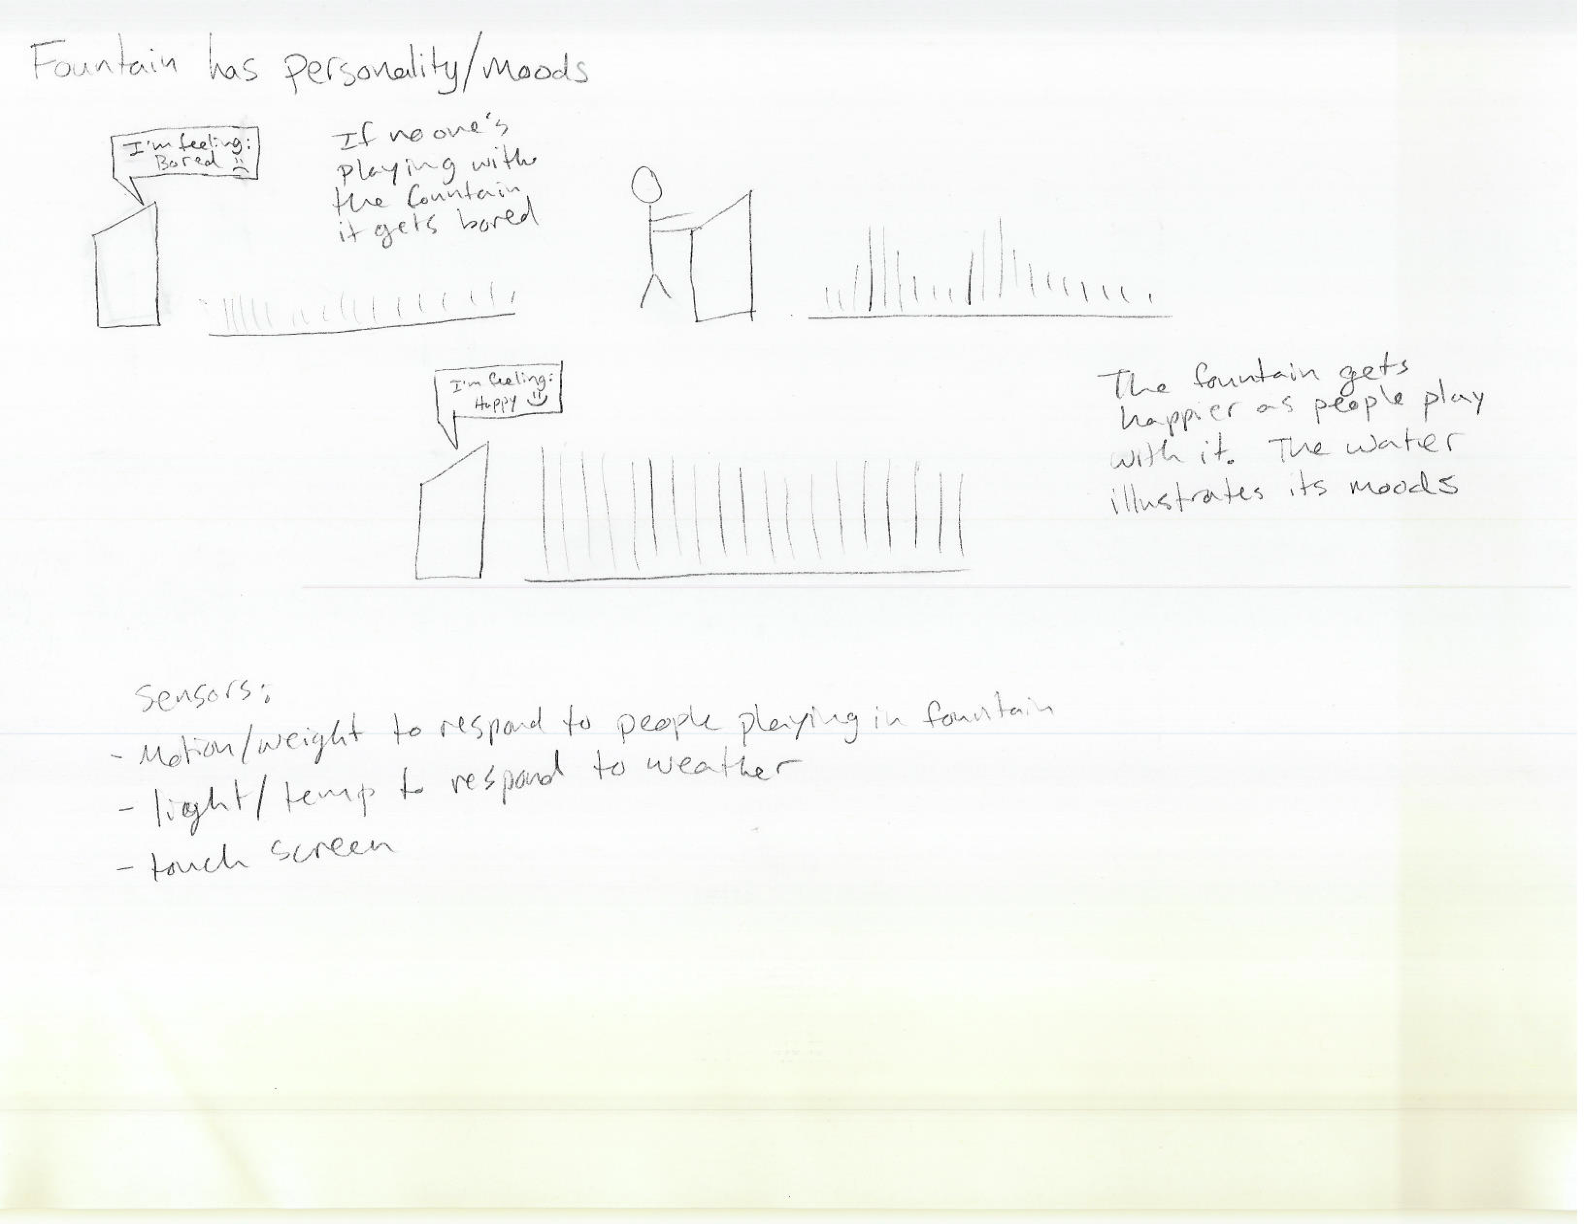 Fountain has personality/moods
I'm feeling:
Bored
If no one's
playing with
the fountain
it gets bored
I'm feeling:
Happy
The fountain gets
happier as people play
with it. The water
illustrates its moods
Sensors:
- Motion/weight to respond to people playing in fountain
- light/temp to respond to weather
- touch screen